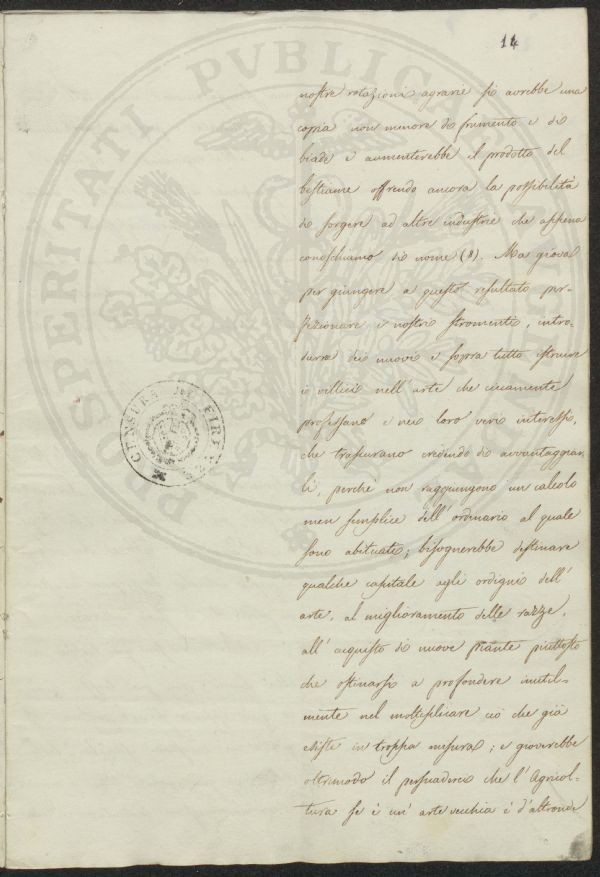 14
nostre rotazioni agrarie si avrebbe una
copia non minore di frumento e di
biade e aumenterebbe il prodotto del
bestiame offrendo ancora la possibilità
di sorgere ad altre industrie che appena
conoschiamo di nome (8). Ma giova
per giungere a questo resultato per-
fezionare i nostri stromenti, intro-
durre dei nuovi e sopra tutto istruire
i villici nell'arte che ciecamente
professano e nei loro veri interessi,
che trascurano credendo di avvantaggiar-
li, perchè non raggiungono un calcolo
men semplice dell'ordinario al quale
sono abituati; bisognerebbe destinare
qualche capitale agli ordigni dell'
arte, al miglioramento delle razze,
all'acquisto di nuove piante piuttosto
che ostinarsi a profondere inutil-
mente nel moltiplicare ciò che già
esiste in troppa misura; e gioverebbe
oltremodo il persuaderci che l'Agricol-
tura se è un'arte vecchia è d'altronde
PROSPERITATI PVBLICAE
CENSURA DI FIRENZE